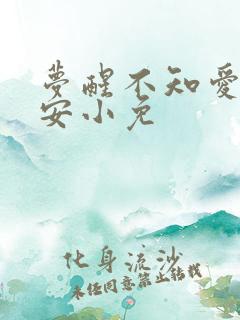 夢醒不知愛
安小兔
化身流沙
未经同意禁止转载